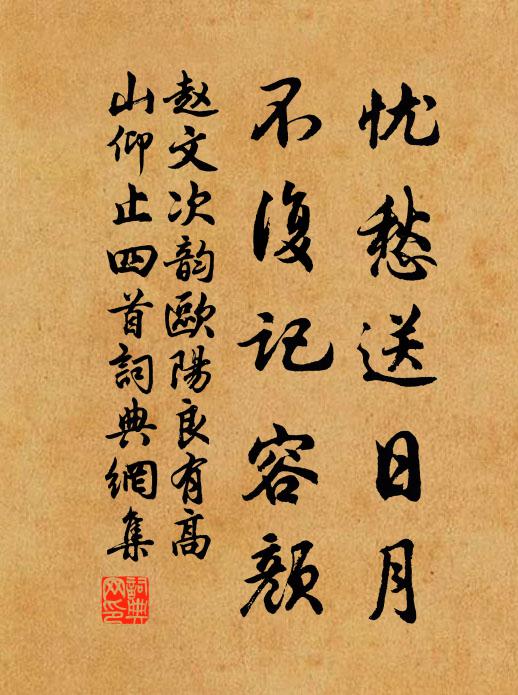 忧愁送日月
不復记容颜
赵文次韵歐陽良有高
山仰止四首詞典網集
詞典网印